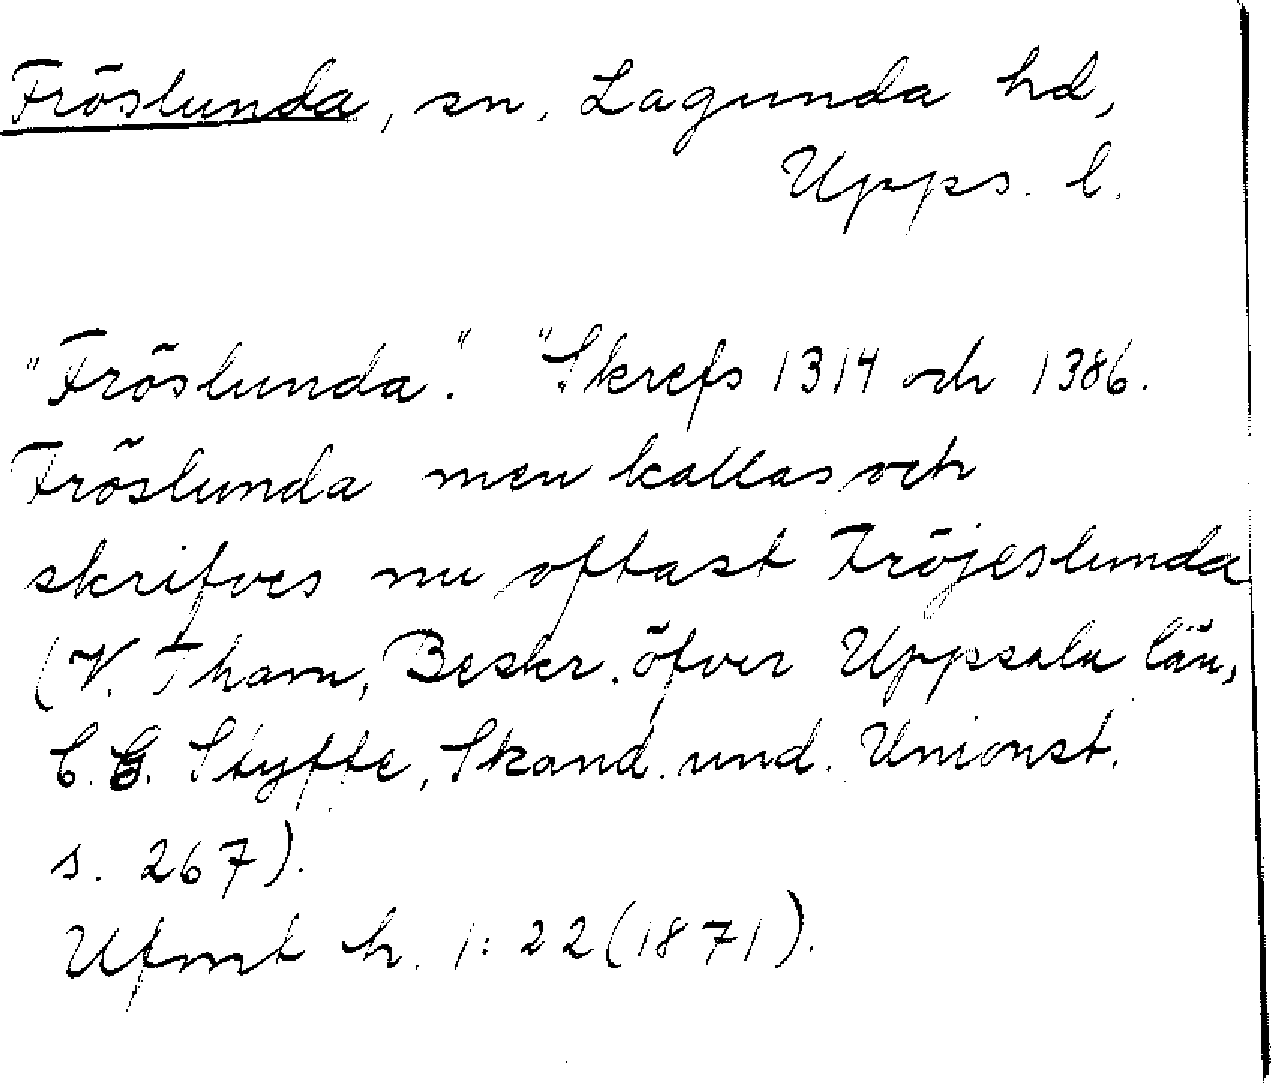 Fröslunda, sn, Lagunda hd,
Upps. l.
"Fröslunda". "Skrefs 1314 och 1386.
Fröslunda men kallas och
skrifves nu oftast Fröjeslunda
(V. Tham, Beskr. öfver Uppsala län,
C. G. Styffe, Skand. und. Unionst.
s. 267).
Ufmt h. 1: 22 (1871).